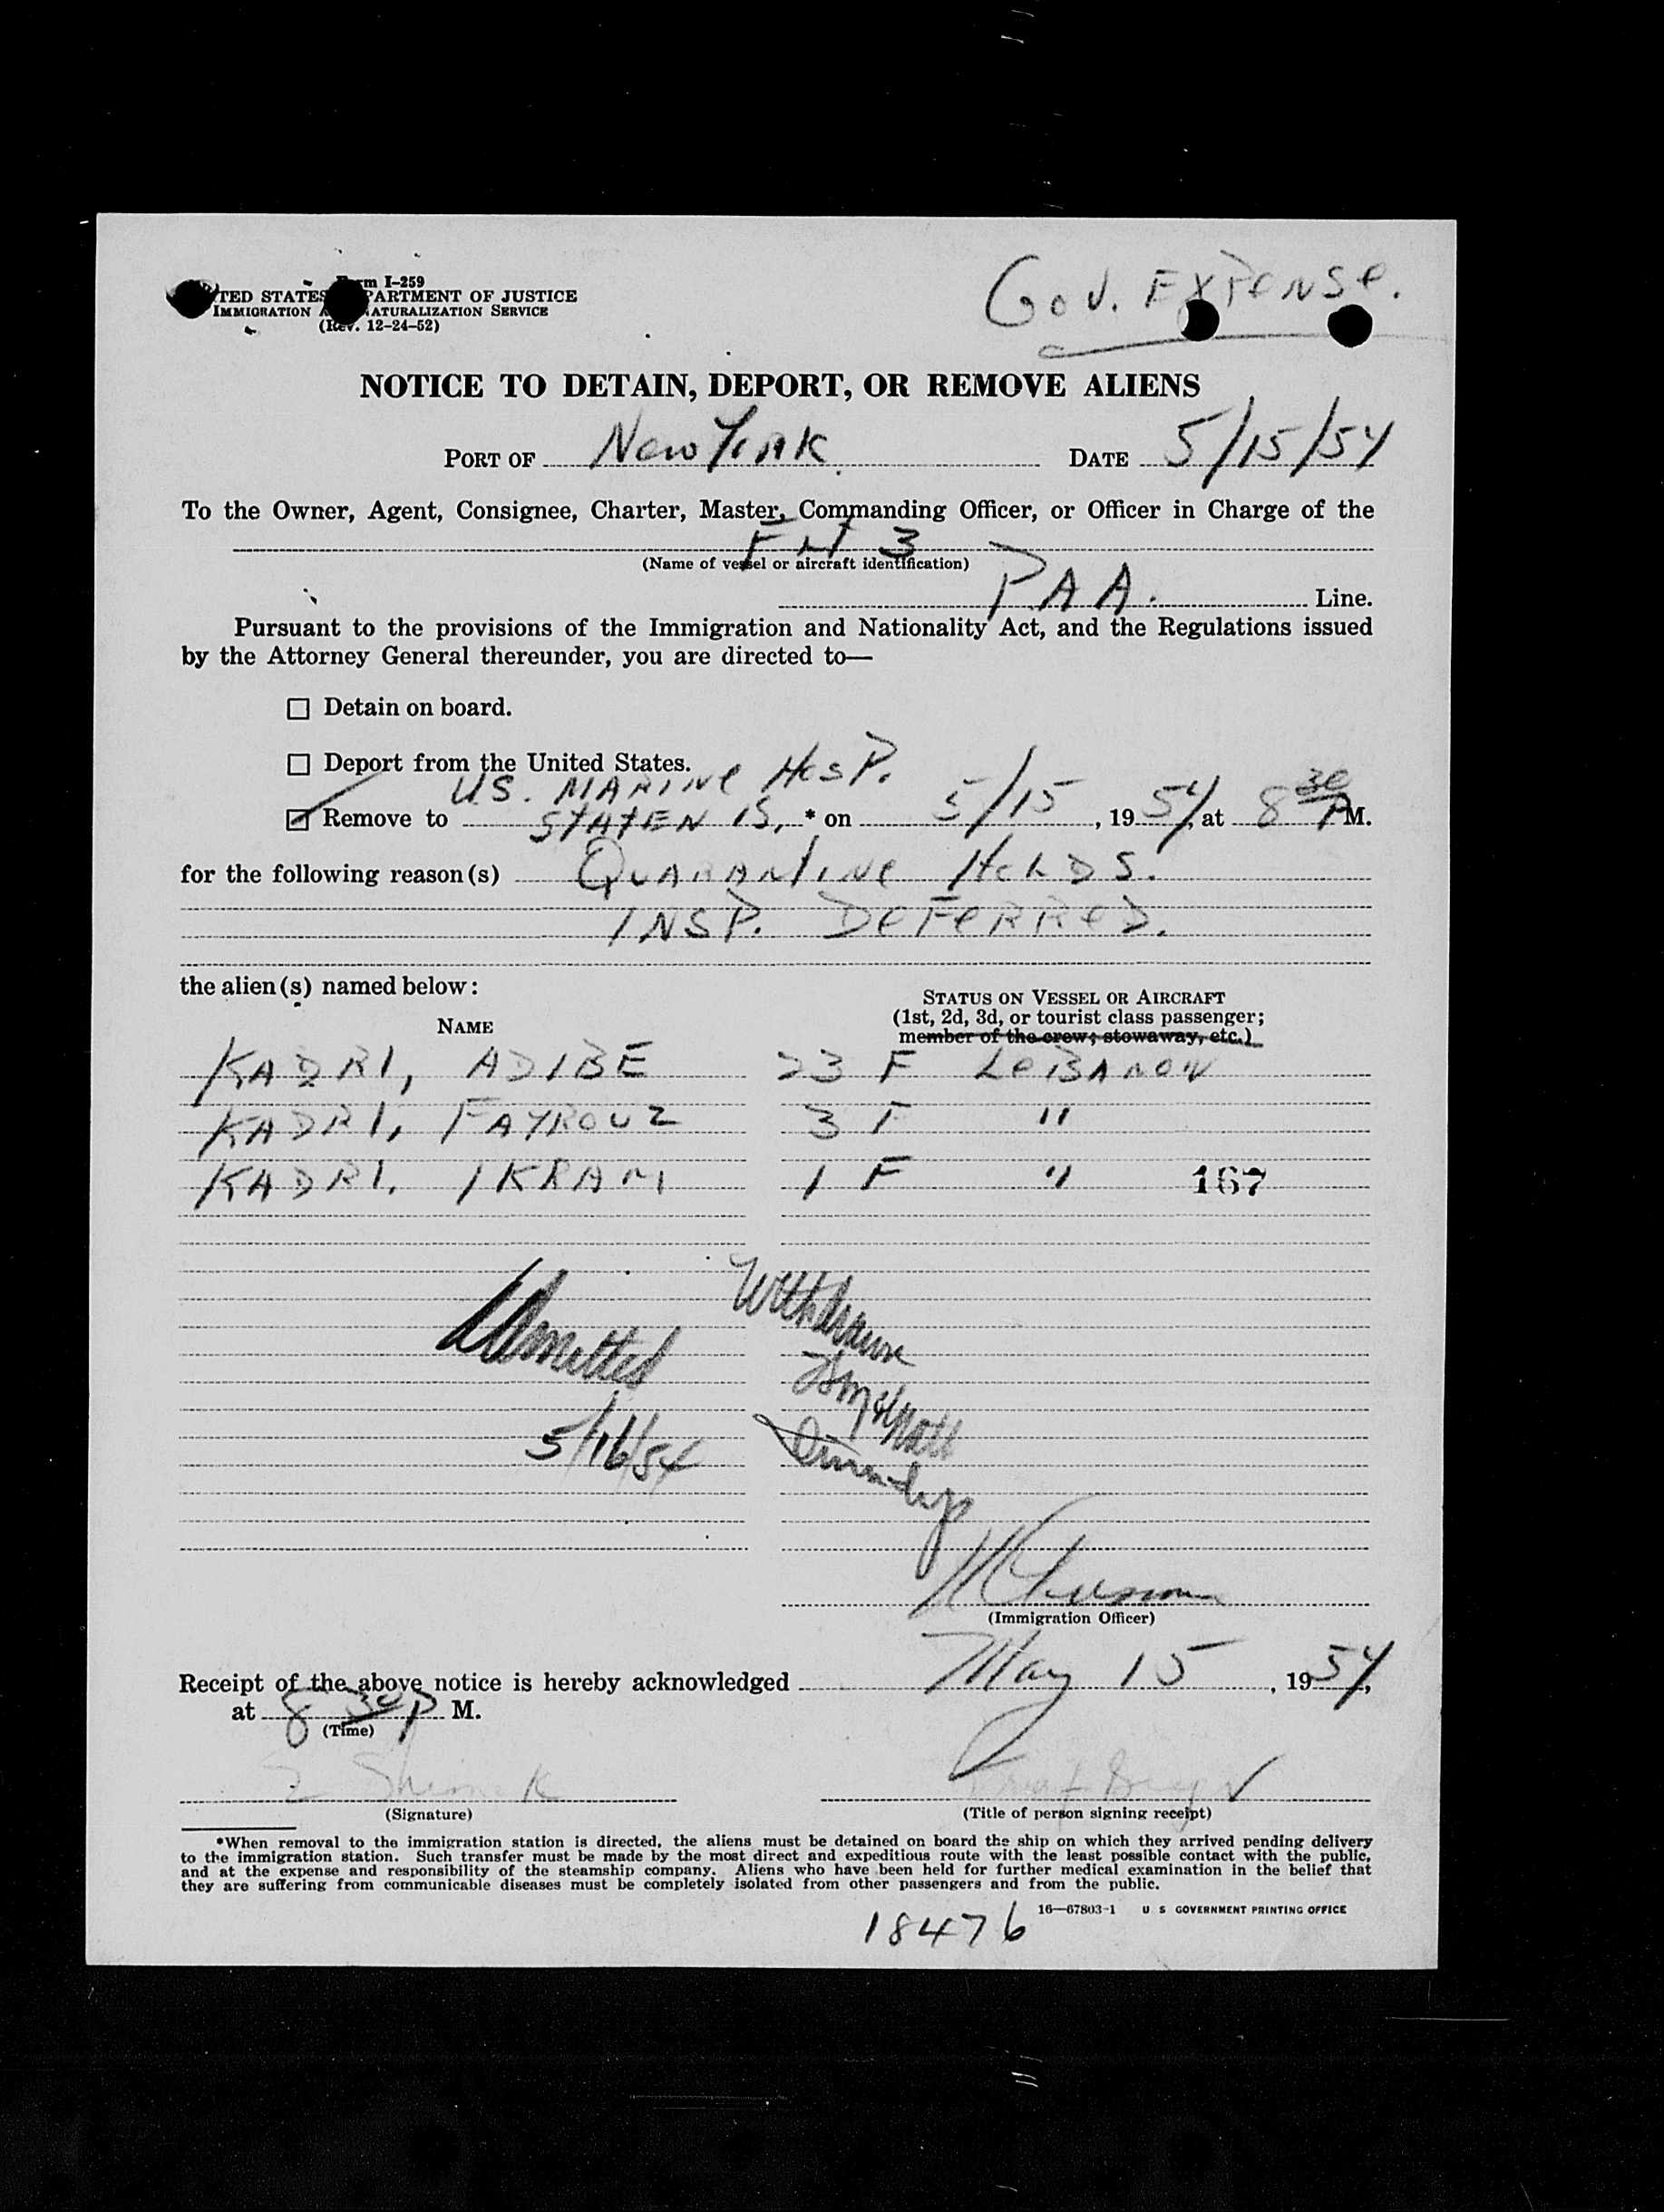 Form I-259
UNITED STATES DEPARTMENT OF JUSTICE
IMMIGRATION AND NATURALIZATION SERVICE
(Rev. 12-24-52)
Gov. EXPENSE.
NOTICE TO DETAIN, DEPORT, OR REMOVE ALIENS
PORT OF New York. DATE 5/15/54
To the Owner, Agent, Consignee, Charter, Master, Commanding Officer, or Officer in Charge of the
3
(Name of vessel or aircraft identification)
PAA. Line.
Pursuant to the provisions of the Immigration and Nationality Act, and the Regulations issued
by the Attorney General thereunder, you are directed to—
Detain on board.
Deport from the United States.
U.S. MARINE HOSP.
Remove to STATEN IS, * on 5/15, 1954, at 8 30 P M.
for the following reason(s) QUARANTINE HOLDS.
INSP. DEFERRED.
the alien(s) named below:
STATUS ON VESSEL OR AIRCRAFT
(1st, 2d, 3d, or tourist class passenger;
member of the crew; stowaway, etc.)
NAME
KADRI, ADIBE 23 F LEBANON
KADRI, FAYROUZ 3 F "
KADRI, IKRAM 1 F " 167
Withdrawn
Admitted
5/16/54
(Immigration Officer)
Receipt of the above notice is hereby acknowledged May 15, 1954,
at 8 30 P M.
(Time)
Shimak
(Signature) (Title of person signing receipt)
*When removal to the immigration station is directed, the aliens must be detained on board the ship on which they arrived pending delivery
to the immigration station. Such transfer must be made by the most direct and expeditious route with the least possible contact with the public,
and at the expense and responsibility of the steamship company. Aliens who have been held for further medical examination in the belief that
they are suffering from communicable diseases must be completely isolated from other passengers and from the public.
16—67803-1 U S GOVERNMENT PRINTING OFFICE
18476